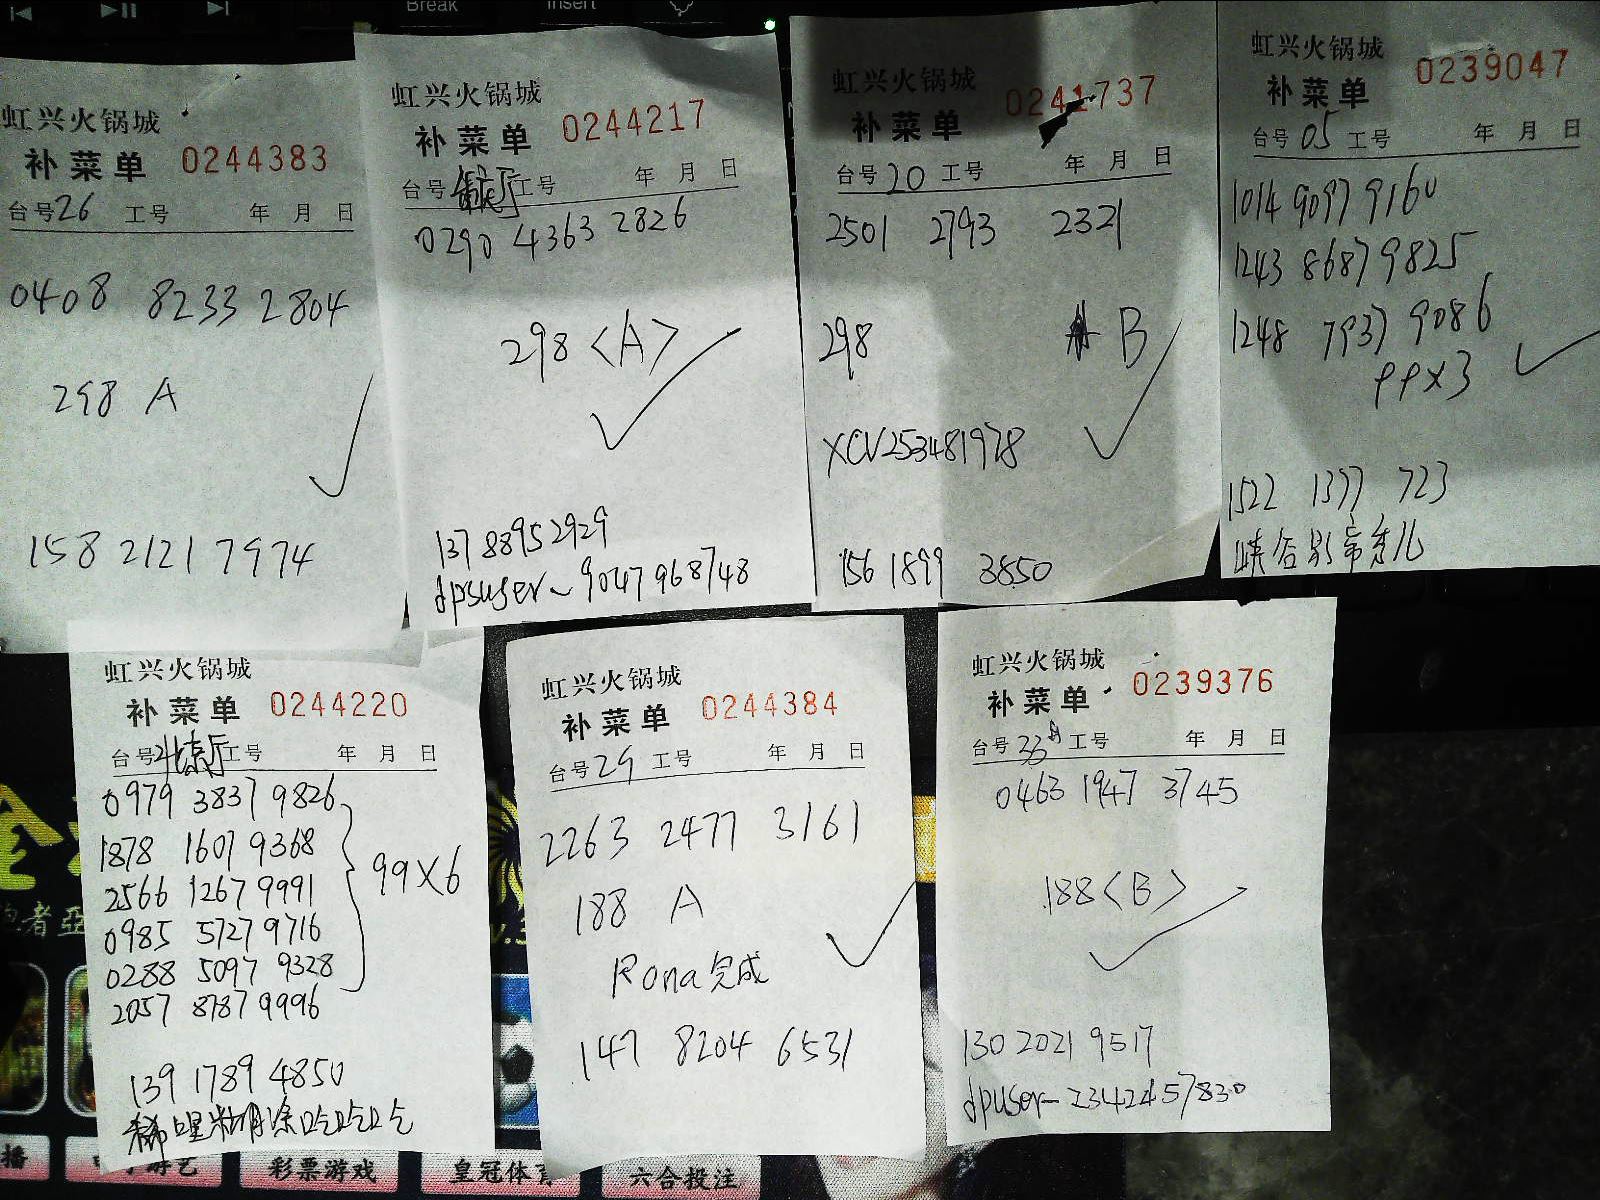 Break
Insert
虹兴火锅城
补菜单 0244383
台号26 工号 年 月 日
0408 8233 2804
298 A
158 2121 7974
虹兴火锅城
补菜单 0244217
台号 工号 年 月 日
0290 4363 2826
298 <A>
137 8895 2929
dpsuser-9047968748
虹兴火锅城
补菜单 0241737
台号20 工号 年 月 日
2501 2793 2321
298 B
XCV253481978
156 1899 3850
虹兴火锅城
补菜单 0239047
台号05 工号 年 月 日
1014 9097 9160
1243 8687 9825
1248 7937 9086
99X3
1522 1377 723
虹兴火锅城
补菜单 0244220
台号 工号 年 月 日
0979 3837 9826
1878 1607 9368
2566 1267 9991
99X6
0985 5727 9716
0288 5097 9328
2057 8787 9996
139 1789 4850
稀哩糊涂吃吃吃
虹兴火锅城
补菜单 0244384
台号29 工号 年 月 日
2263 2477 3161
188 A
Rona完成
147 8204 6531
虹兴火锅城
补菜单 0239376
台号33 工号 年 月 日
0463 1947 3745
188<B>
130 2021 9517
dpuser-2342457830
彩票游戏
皇冠体育
六合投注